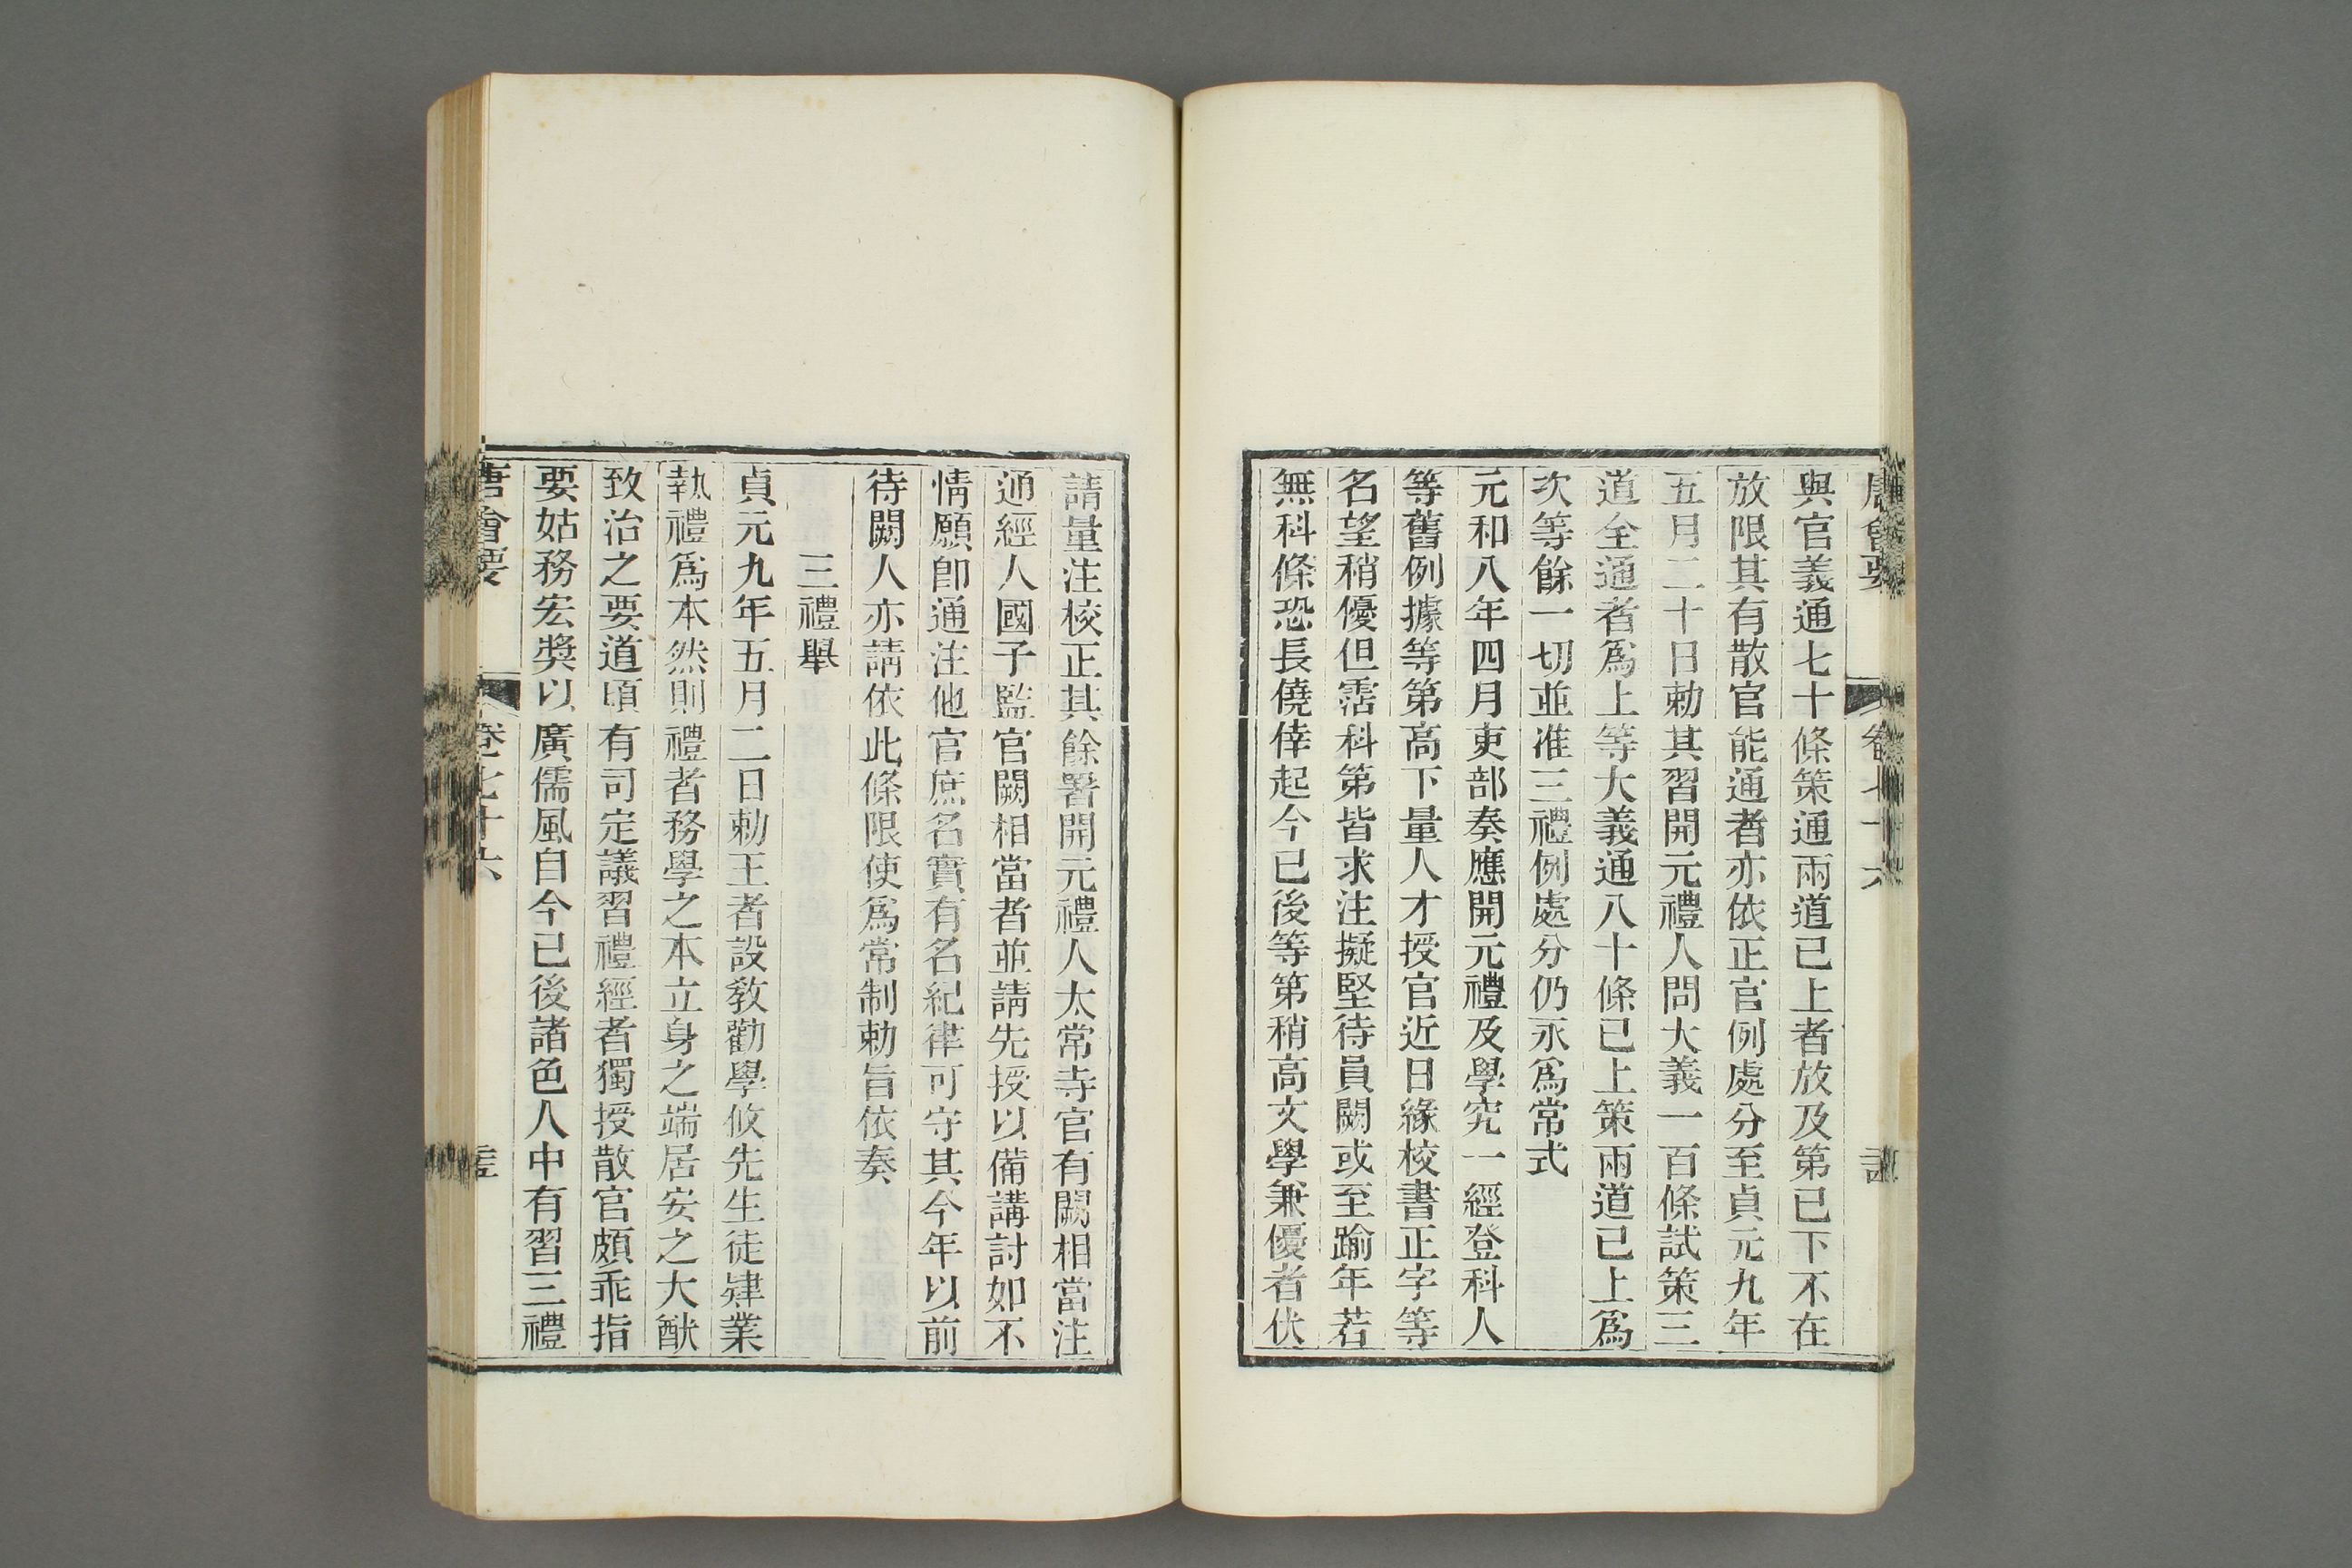 唐會要 卷七十六
與官義通七十條策通兩道已上者放及第已下不在
放限其有散官能通者亦依正官例處分至貞元九年
五月二十日勅其習開元禮人問大義一百條試策三
道全通者爲上等大義通八十條已上策兩道已上爲
次等餘一切並准三禮例處分仍永爲常式
元和八年四月吏部奏應開元禮及學究一經登科人
等舊例據等第高下量人才授官近日緣校書正字等
名望稍優但霑科第皆求注擬堅待員闕或至踰年若
無科條恐長僥倖起今已後等第稍高文學兼優者伏
請量注校正其餘署開元禮人太常寺官有闕相當注
通經人國子監官闕相當者並請先授以備講討如不
情願卽通注他官庶名實有名紀律可守其今年以前
待闕人亦請依此條限使爲常制勅旨依奏
三禮舉
貞元九年五月二日勅王者設敎勸學攸先生徒肄業
執禮爲本然則禮者務學之本立身之端居安之大猷
致治之要道頃有司定議習禮經者獨授散官頗乖指
要姑務宏奬以廣儒風自今已後諸色人中有習三禮
唐會要 卷七十六